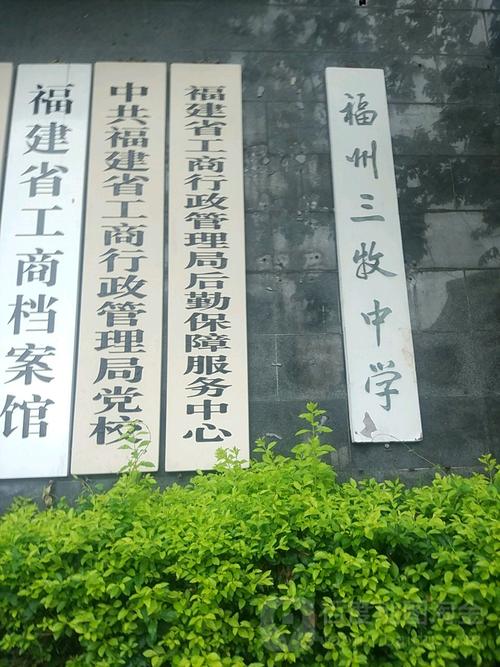 福建省工商档案馆
中共福建省工商行政管理局党校
福建省工商行政管理局后勤保障服务中心
福州三牧中学